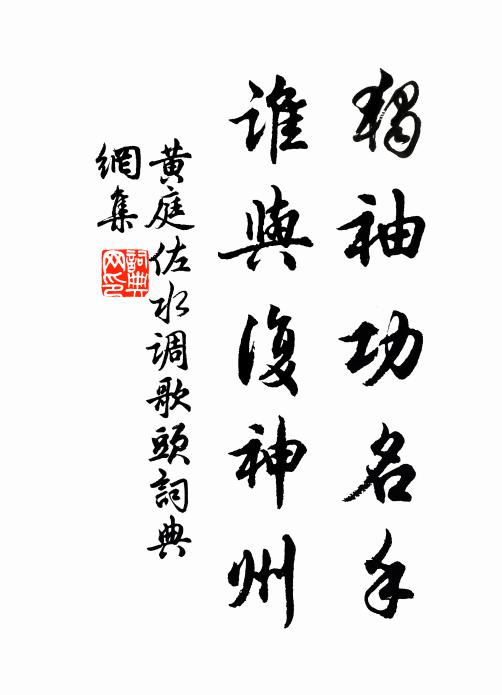 獨袖功名手
誰與復神州
黄庭佐水调歌頭詞典
網集
詞典
网印